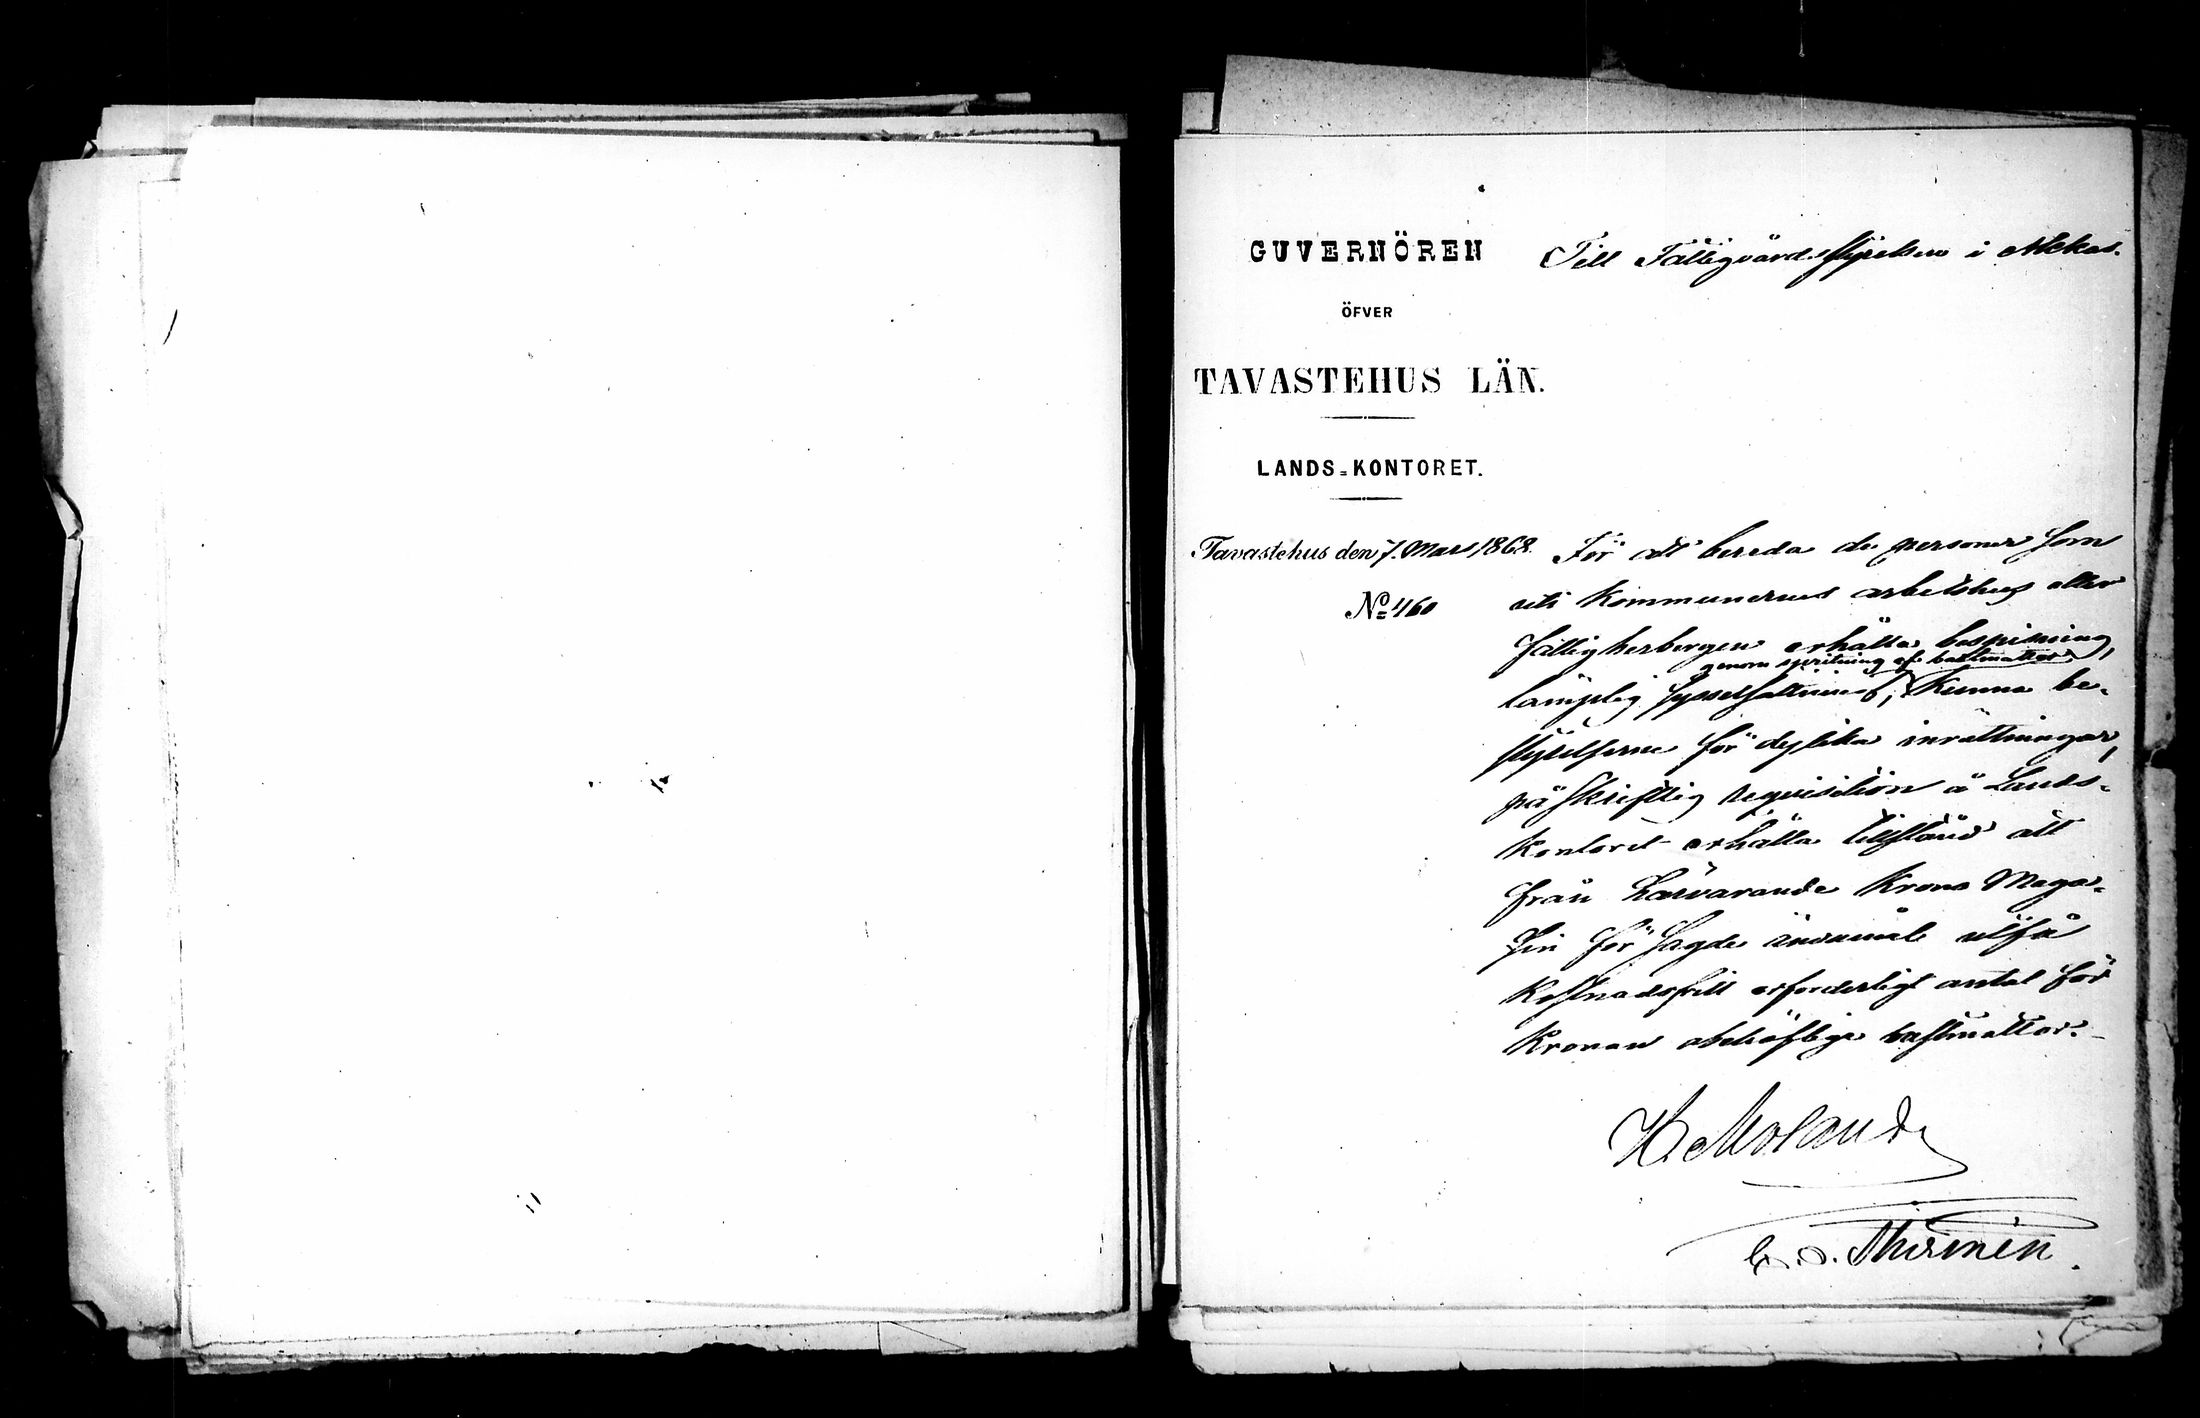 GUVERNÖREN
ÖFVER
TAVASTEHUS LÄN.
LANDS-KONTORET.
Tavastehus den 7. Mars 1868.
No 460
Till Fattigvårds styrelsen i Akkas.
För att bereda de personer som
uti kommunernas arbetshus eller
fattigherbergen erhålla bespisning,
genom spritning af bastmattor
lämplig sysselsättning, kunna be-
styrelserne för dylika inrättningar,
på skriftlig requisition å Lands-
kontoret erhålla tillstånd att
från härvarande Krono Maga-
sin för sagde ändamål utfå
kostnadsfritt erforderligt antal för
Kronan obehöflige bastmattor.
H. Molander
G. O. Thermén.